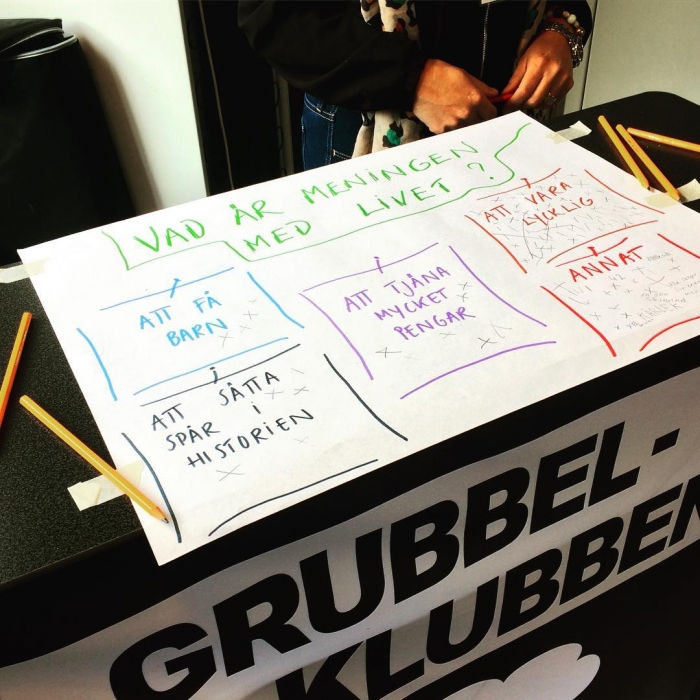 VAD ÄR MENINGEN
MED LIVET ?
ATT FÅ
BARN
ATT TJÄNA
MYCKET
PENGAR
ATT VARA
LYCKLIG
ANNAT
ATT SÄTTA
SPÅR I
HISTORIEN
GRUBBEL-
KLUBBEN